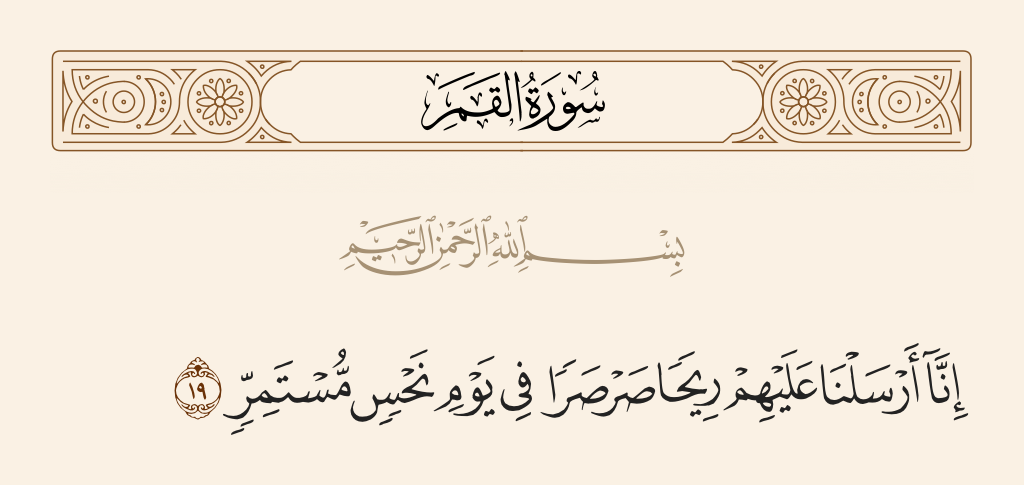 سُورَةُ القَمَرِ
بِسْمِ ٱللَّهِ ٱلرَّحْمَٰنِ ٱلرَّحِيمِ
إِنَّآ أَرْسَلْنَا عَلَيْهِمْ رِيحًا صَرْصَرًا فِى يَوْمِ نَحْسٍ مُّسْتَمِرٍّ ١٩